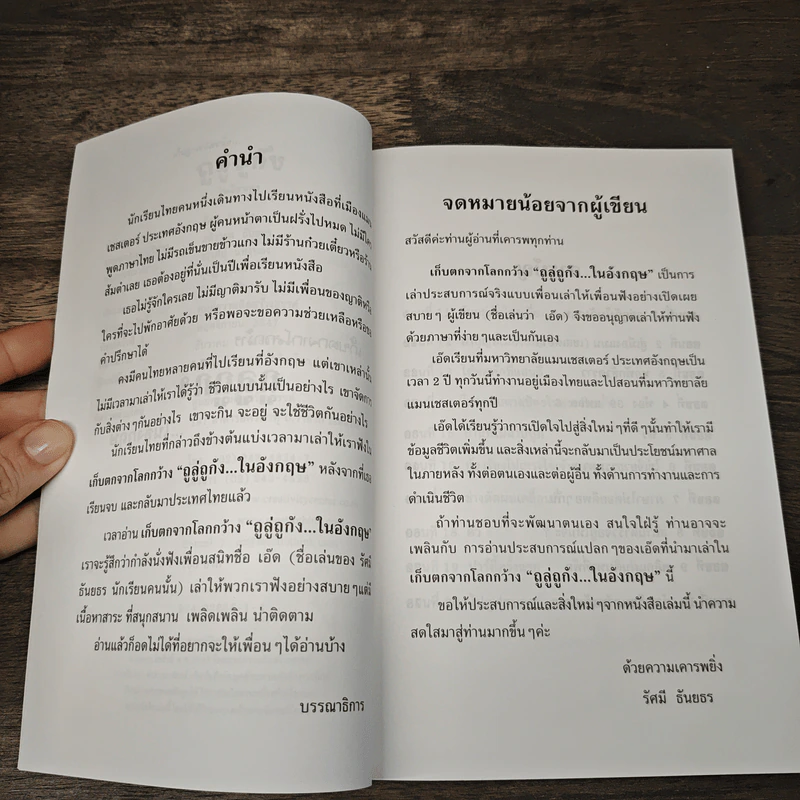 คำนำ
นักเรียนไทยคนหนึ่งเดินทางไปเรียนหนังสือที่เมืองแมน
เชสเตอร์ ประเทศอังกฤษ ผู้คนหน้าตาเป็นฝรั่งไปหมด ไม่มีใคร
พูดภาษาไทย ไม่มีรถเข็นขายข้าวแกง ไม่มีร้านก๋วยเตี๋ยวหรือร้าน
ส้มตำเลย เธอต้องอยู่ที่นั่นเป็นปีเพื่อเรียนหนังสือ
เธอไม่รู้จักใครเลย ไม่มีญาติมารับ ไม่มีเพื่อนของญาติหรือ
ใครที่จะไปพักอาศัยด้วย หรือพอจะขอความช่วยเหลือหรือขอ
คำปรึกษาได้
คงมีคนไทยหลายคนที่ไปเรียนที่อังกฤษ แต่เขาเหล่านั้น
ไม่มีเวลามาเล่าให้เราได้รู้ว่า ชีวิตแบบนั้นเป็นอย่างไร เขาจัดการ
กับสิ่งต่างๆกันอย่างไร เขาจะกิน จะอยู่ จะใช้ชีวิตกันอย่างไร
นักเรียนไทยที่กล่าวถึงข้างต้นแบ่งเวลามาเล่าให้เราฟังใน
เก็บตกจากโลกกว้าง “ถูลู่ถูกัง...ในอังกฤษ” หลังจากที่เธอ
เรียนจบ และกลับมาประเทศไทยแล้ว
เวลาอ่าน เก็บตกจากโลกกว้าง “ถูลู่ถูกัง...ในอังกฤษ”
เราจะรู้สึกว่ากำลังนั่งฟังเพื่อนสนิทชื่อ เอ๊ด (ชื่อเล่นของ รัศมี
ธันยธร นักเรียนคนนั้น) เล่าให้พวกเราฟังอย่างสบายๆแต่มี
เนื้อหาสาระ ที่สนุกสนาน เพลิดเพลิน น่าติดตาม
อ่านแล้วก็อดไม่ได้ที่อยากจะให้เพื่อนๆได้อ่านบ้าง
บรรณาธิการ
จดหมายน้อยจากผู้เขียน
สวัสดีค่ะท่านผู้อ่านที่เคารพทุกท่าน
เก็บตกจากโลกกว้าง “ถูลู่ถูกัง...ในอังกฤษ” เป็นการ
เล่าประสบการณ์จริงแบบเพื่อนเล่าให้เพื่อนฟังอย่างเปิดเผย
สบายๆ ผู้เขียน (ชื่อเล่นว่า เอ๊ด) จึงขออนุญาตเล่าให้ท่านฟัง
ด้วยภาษาที่ง่ายๆและเป็นกันเอง
เอ๊ดเรียนที่มหาวิทยาลัยแมนเชสเตอร์ ประเทศอังกฤษเป็น
เวลา 2 ปี ทุกวันนี้ทำงานอยู่เมืองไทยและไปสอนที่มหาวิทยาลัย
แมนเชสเตอร์ทุกปี
เอ๊ดได้เรียนรู้ว่าการเปิดใจไปสู่สิ่งใหม่ๆที่ดีๆนั้นทำให้เรามี
ข้อมูลชีวิตเพิ่มขึ้น และสิ่งเหล่านี้จะกลับมาเป็นประโยชน์มหาศาล
ในภายหลัง ทั้งต่อตนเองและต่อผู้อื่น ทั้งด้านการทำงานและการ
ดำเนินชีวิต
ถ้าท่านชอบที่จะพัฒนาตนเอง สนใจใฝ่รู้ ท่านอาจจะ
เพลินกับ การอ่านประสบการณ์แปลกๆของเอ๊ดที่นำมาเล่าใน
เก็บตกจากโลกกว้าง “ถูลู่ถูกัง...ในอังกฤษ” นี้
ขอให้ประสบการณ์และสิ่งใหม่ๆจากหนังสือเล่มนี้ นำความ
สดใสมาสู่ท่านมากขึ้นๆค่ะ
ด้วยความเคารพยิ่ง
รัศมี ธันยธร